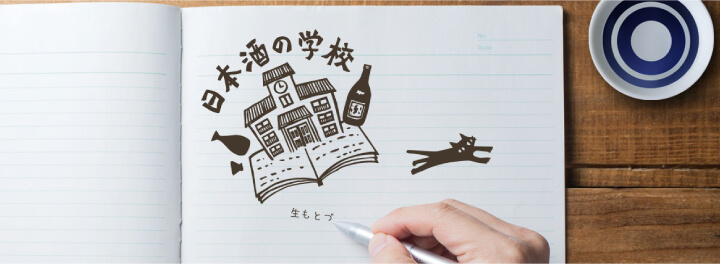 日本酒の学校
生もとづ
No.
Date